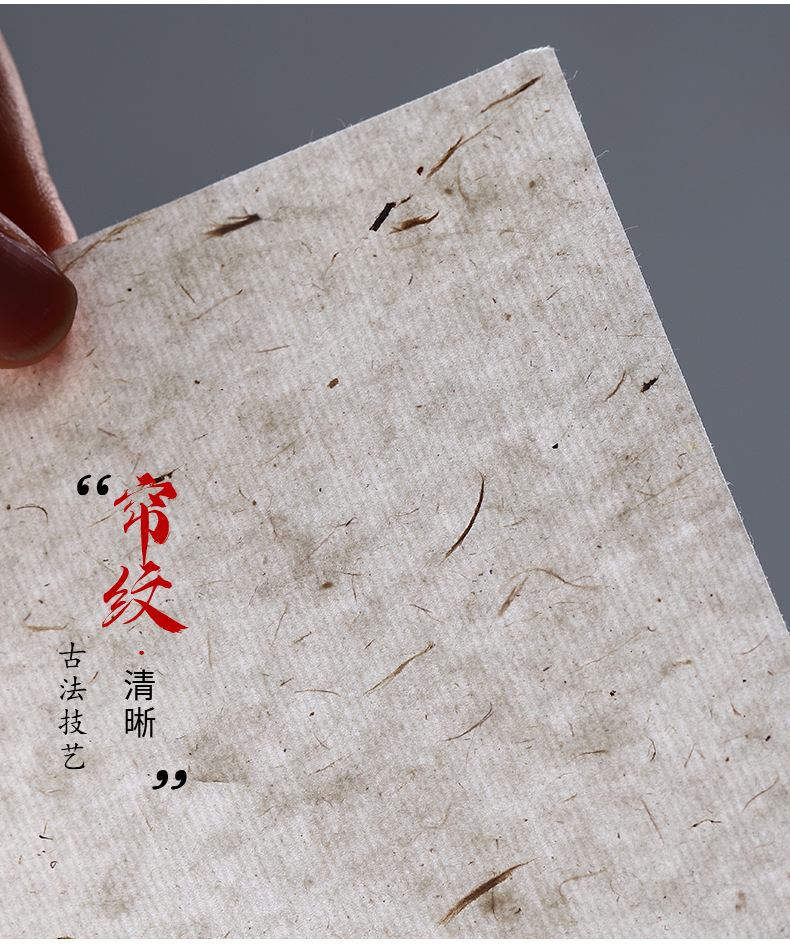 “帘纹·清晰”
古法技艺